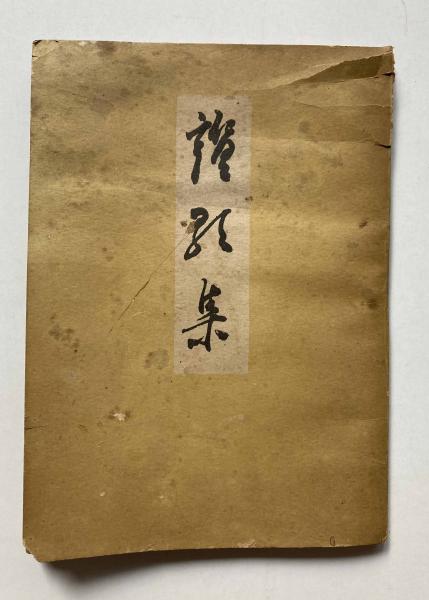 讃歌集